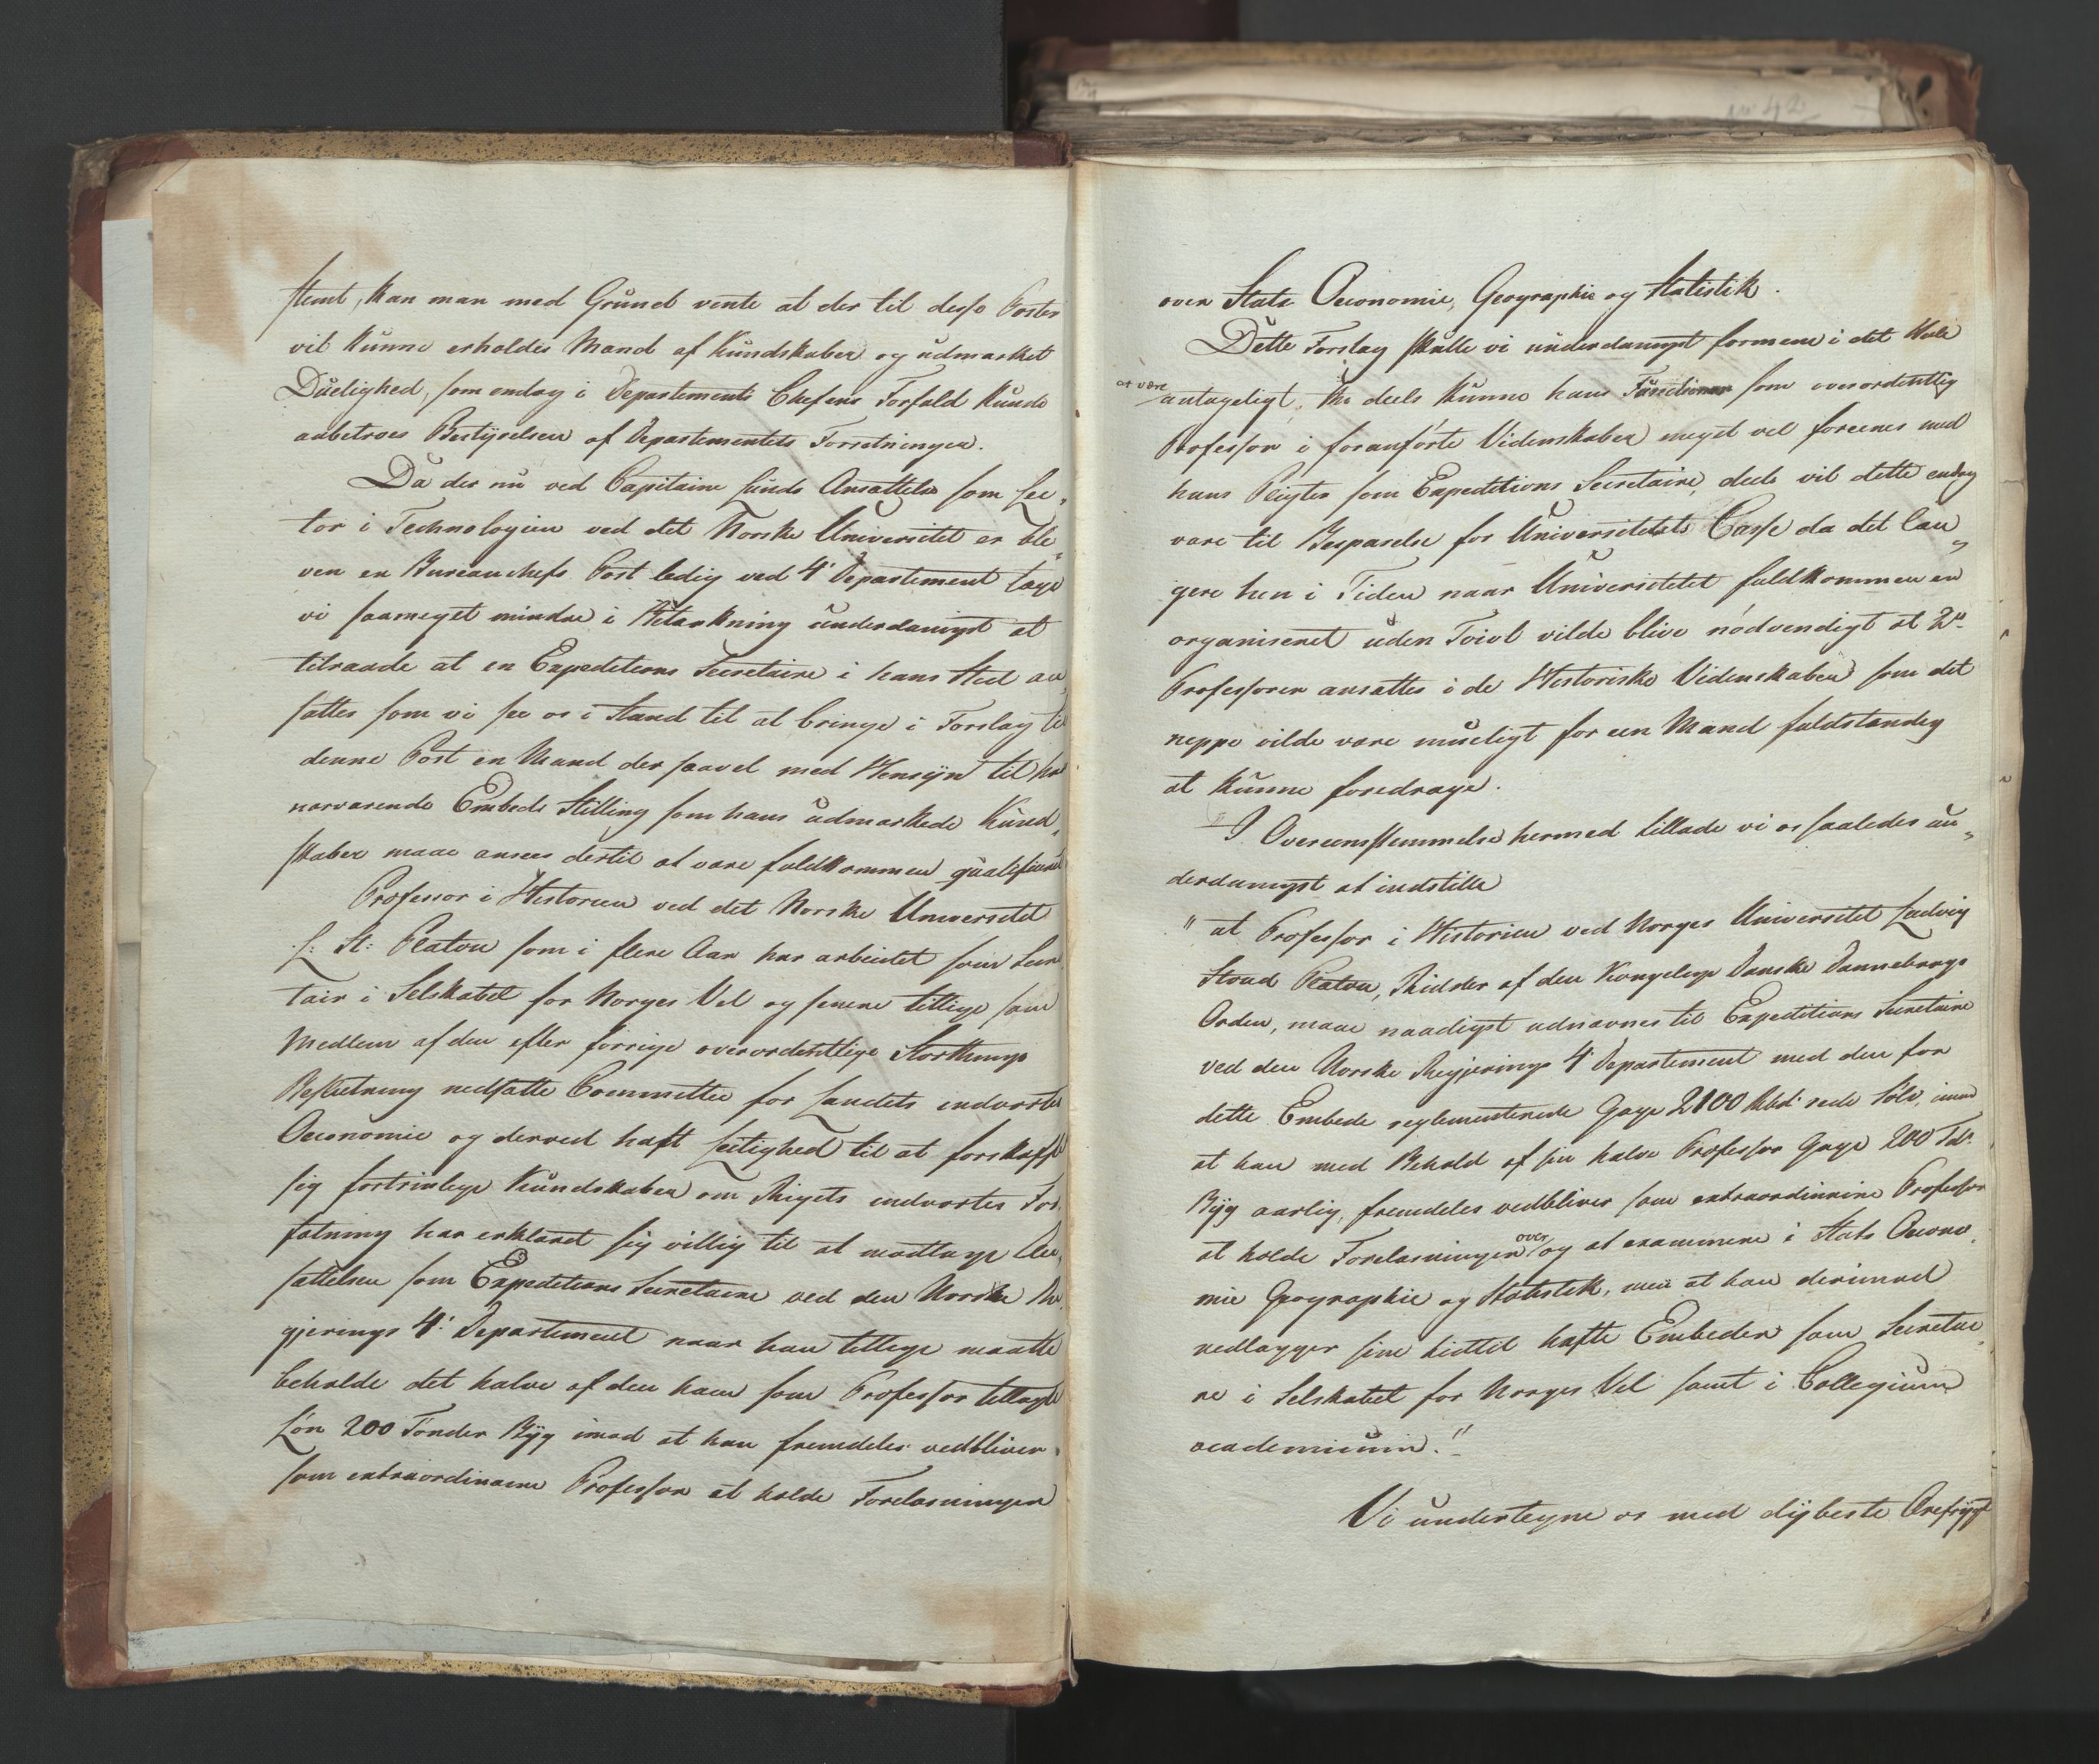 stemt, kan man med Grund vente at der til disse Poster
vil kunne erholdes Mænd af Kundskaber og udmærket
Duelighed, som endog i Departements Chefens Forfald kunde
anbetroes Bestyrelsen af Departementets Forretninger.
Da der nu ved Capitaine Lunds Ansættelse som Lec„
tor i Technologien ved det Norske Universitet er ble„
ven en Bureauchefs Post ledig ved 4' Departement tage
vi saameget mindre i Betænkning underdanigst at
tilraade at en Expeditions Secretaire i hans Sted an„
sættes som vi see os i Stand til at bringe i Forslag til
denne Post en Mand der saavel med Hensyn til hans
nærværende Embeds Stilling som hans udmærkede Kund„
skaber maae ansees dertil at være fuldkommen qualificeret
Professor i Historien ved det Norske Universitet
L: St: Platou som i flere Aar har arbeidet som Secre
tair i Selskabet for Norges Vel og senere tillige som
Medlem af den efter forrige overordentlige Storthings
Beslutning nedsatte Committee for Landets indvortes
Oeconomie og derved haft Leilighed til at forskaffe
sig fortrinlige Kundskaber om Rigets indvortes For„
fatning har erklæret sig villig til at modtage An„
sættelsen som Expeditions Secretaire ved den Norske Re„
gjerings 4' Departement naar han tillige maatte
beholde det halve af den ham som Professor tillagte
Løn 200 Tønder Byg imod at han fremdeles vedbliver
som extraordinaire Professor at holde Forelæsninger
over Stats Oeconomie, Geographie og Statistik.
Dette Forslag skulle vi underdanigst formene i det Hele
at være
antageligt, thi deels kunne hans Functioner som overordentlig
Professor i foranførte Videnskaber meget vel foreenes med
hans Pligter som Expeditions Secretaire, deels vil dette endog
være til Besparelse for Universitetets Casse da det læn„
gere hen i Tiden naar Universitetet fuldkommen er
organiseret uden Tvivl vilde blive nødvendigt at 2de
Professorer ansættes i de Historiske Videnskaber som det
neppe vilde være mueligt for een Mand fuldstændig
at kunne foredrage.
I Overeensstemmelse hermed tillade vi os saaledes un„
derdanigst at indstille
"at Professor i Historien ved Norges Universitet Ludvig
Stoud Platou, Ridder af den Kongelige Danske Dannebrogs
Orden, maae naadigst udnævnes til Expeditions Secretaire
ved den Norske Regjerings 4' Departement med den for
dette Embede reglementerede Gage 2100 Rbd: rede Sølv, imod
at han med Behold af sin halve Professor Gage 200 Tdr.
Byg aarlig, fremdeles vedbliver som extraordinaire Professor
at holde Forelæsninger over og at examinere i Stats Oecono„
mie Geographie og Statistik, men at han derimod
nedlægger sine hidtil hafte Embeder som Secretai„
re i Selskabet for Norges Vel samt i Collegium
academicum."
Vi undertegne os med dybeste Ærefrygt